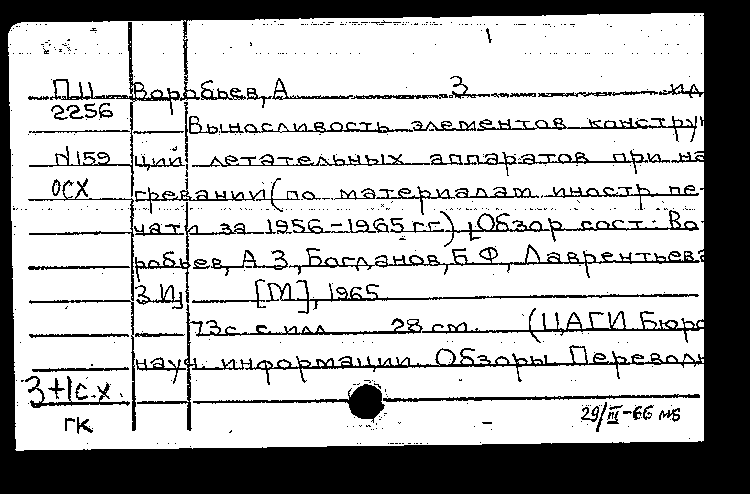 1
П II Воробьев, А З ид
2256
Выносливость элементов констру
N 159 ций летательных аппаратов при на
ОСХ гревании (по материалам иностр пе-
чати за 1956-1965 гг) [Обзор сост: Во-
робьев, А З, Богданов, Б Ф, Лаврентьева
З И] [М], 1965
73 с. с илл 28 cm. (ЦАГИ Бюро
науч. информации Обзоры Переводы
3+1 с.х.
ГК 29/III-66 мв